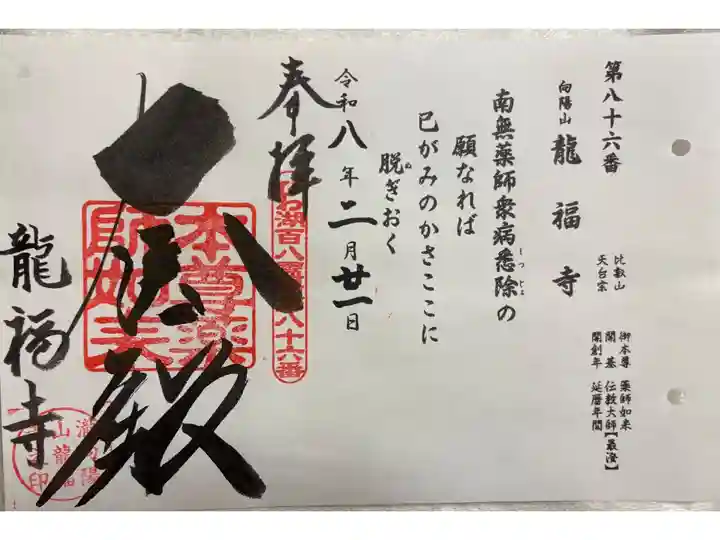 第八十六番
向陽山 龍福寺
比叡山
天台宗
御本尊 薬師如来
開基 伝教大師【最澄】
開創年 延暦年間
南無薬師衆病悉除の
しつじょ
願なれば
已がみのかさここに
脱ぎおく
ぬ
令和八年二月廿一日
奉拝
びわ湖百八霊場八十六番
本尊薬師如来
医殿
龍福寺